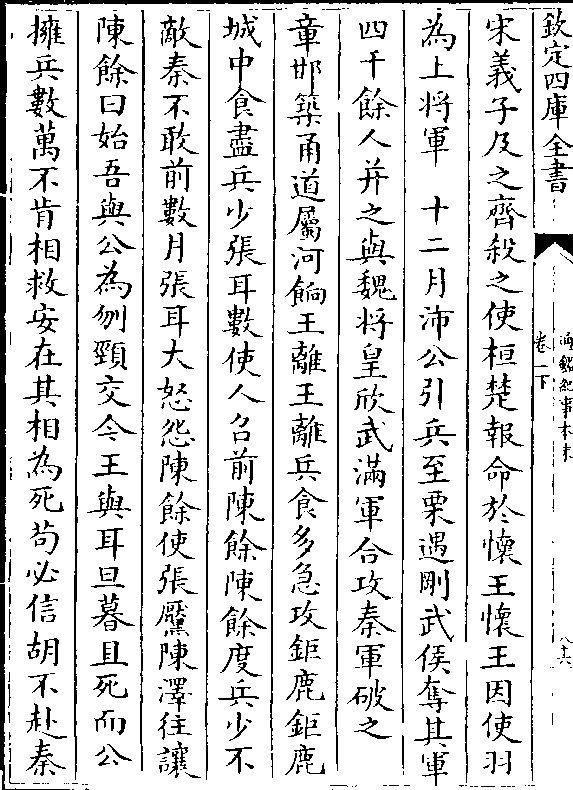 欽定四庫全書
通鑑紀事本末
卷一下
宋義子及之齊殺之使桓楚報命於懷王懷王因使羽
為上将軍　十二月沛公引兵至栗遇剛武侯奪其軍
四千餘人并之與魏将皇欣武滿軍合攻秦軍破之
章邯築甬道屬河餉王離王離兵食多急攻鉅鹿鉅鹿
城中食盡兵少張耳數使人召前陳餘陳餘度兵少不
敵秦不敢前數月張耳大怒怨陳餘使張黶陳澤往讓
陳餘曰始吾與公為刎頸交今王與耳旦暮且死而公
擁兵數萬不肯相救安在其相為死苟必信胡不赴秦